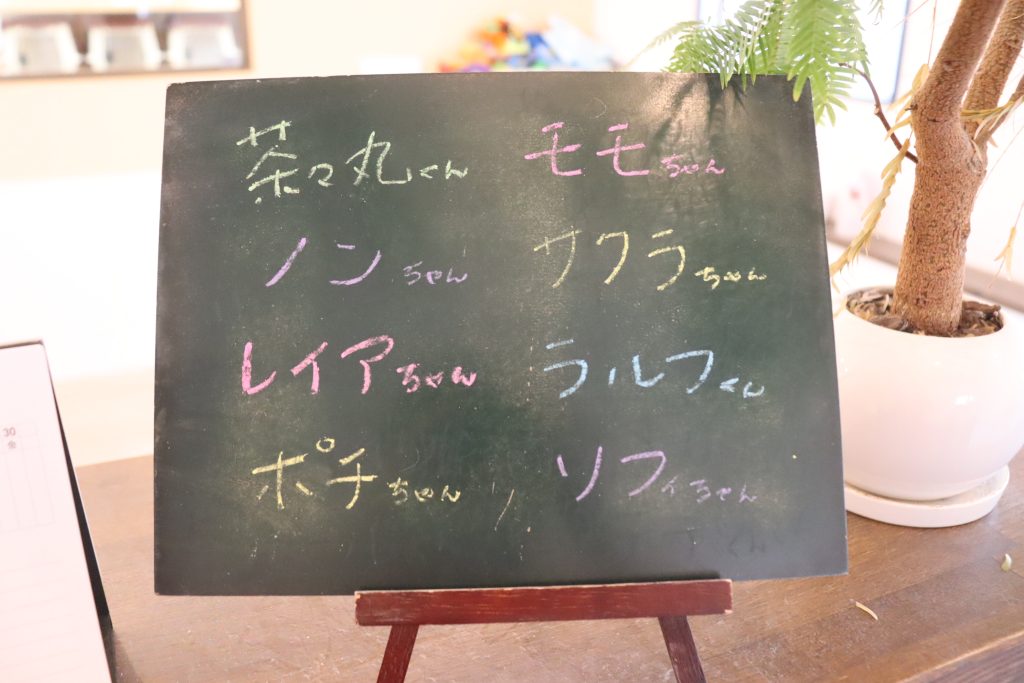 茶々丸くん モモちゃん
ノンちゃん サクラちゃん
レイアちゃん ラルフくん
ポチちゃん ソフィちゃん
30
金